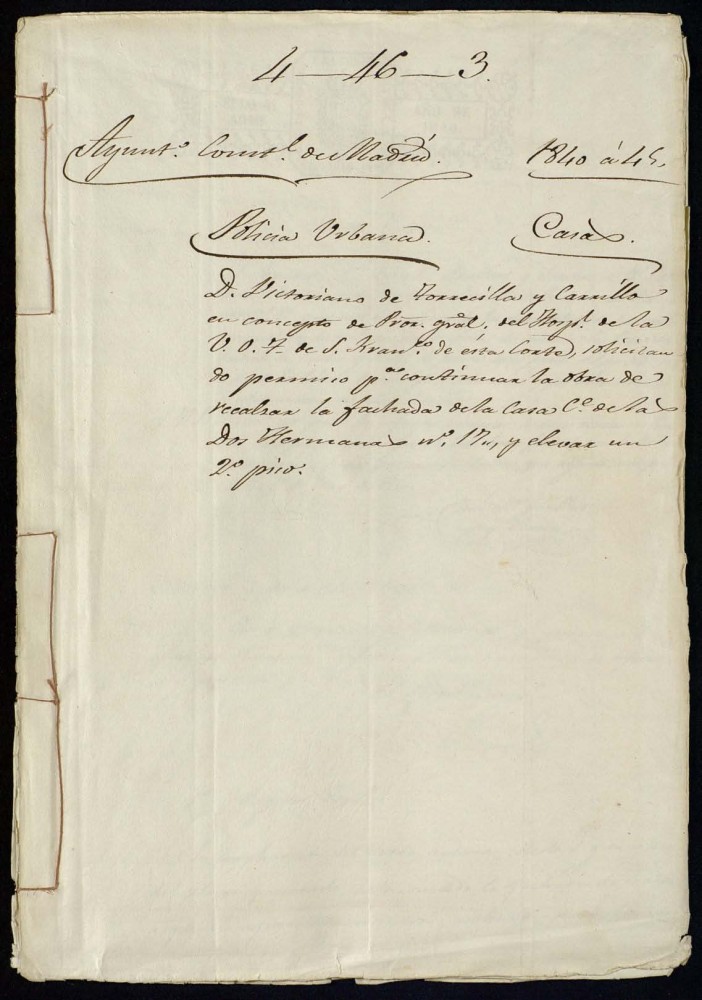 4 — 46 — 3.
Ayunt.º Const.l de Madrid. 1840 á 45.
Policia Urbana. Casas.
D. Victoriano de Torrecilla y Carrillo
en concepto de Pror. gral. del Hospl. de la
V. O. T. de S. Fran.co de ésta Corte, solicitan
do permiso p.a continuar la obra de
recalzar la fachada de la Casa C.e de las
Dos Hermanas n.º 17,, y elevar un
2.º piso.